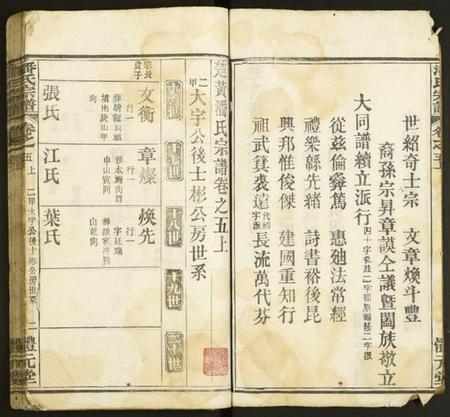 潘氏宗譜
卷之五
世紹奇士宗　文章煥斗豐
裔孫宗昇章謨仝議暨闔族敬立
大同譜續立派行
從茲倫彝篤　惠廸法常經
禮樂緜先緒　詩書裕後昆
興邦惟俊傑　建國重知行
祖武箕裘遠　長流萬代芬
惇元堂
楚黃潘氏宗譜卷之五上
二甲大宇公後士彬公房世系
十六世
十七世
十八世
十九世
二十世
宗長貴子
文衡
行一
張氏
章燦
行一
江氏
煥先
行一
字廷瑞
葉氏
潘氏宗譜
卷之五上
二甲大宇公後士彬公房世系
二
惇元堂